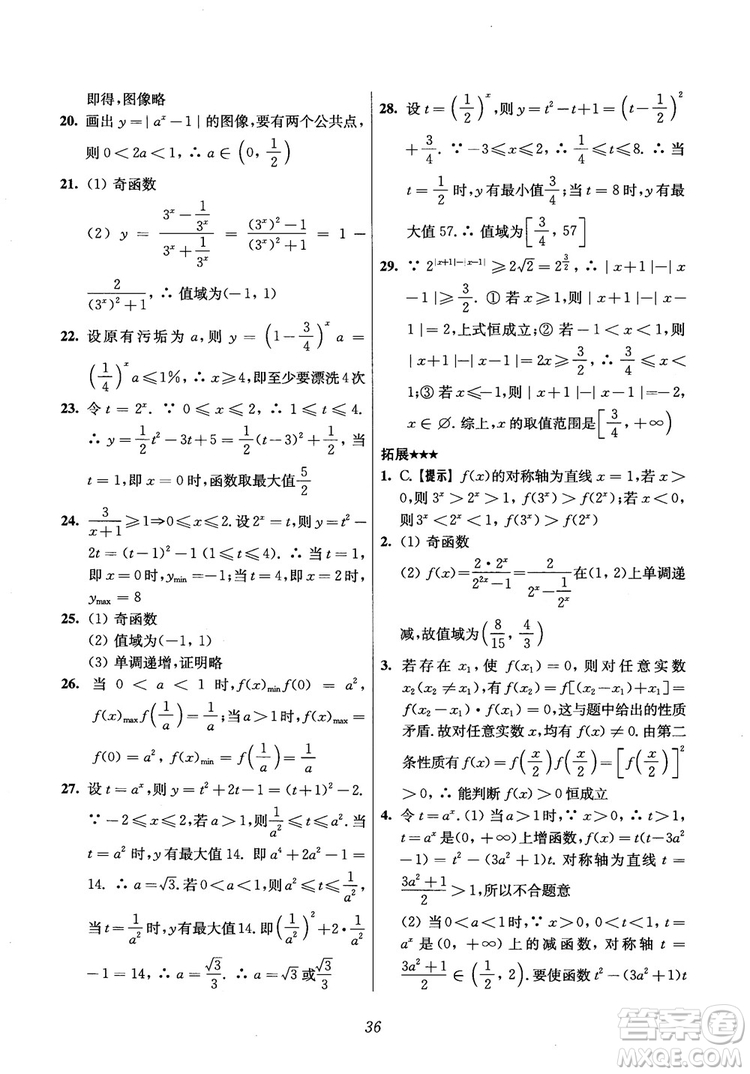 即得,图像略
20. 画出 y=|a^x-1| 的图像,要有两个公共点,
则 0<2a<1,∴ a∈(0, 1/2)
21. (1) 奇函数
(2) y = (3^x - 1/3^x)/(3^x + 1/3^x) = ((3^x)^2-1)/((3^x)^2+1) = 1 -
2/((3^x)^2+1),∴ 值域为(-1, 1)
22. 设原有污垢为 a,则 y = (1-3/4)^x a =
(1/4)^x a≤1%,∴ x≥4,即至少要漂洗 4次
23. 令 t=2^x. ∵ 0≤x≤2,∴ 1≤t≤4.
∴ y=1/2 t^2-3t+5=1/2 (t-3)^2+1/2. ∴ 当
t=1,即 x=0 时,函数取最大值 5/2
24. 3/(x+1)≥1⇒0≤x≤2. 设2^x=t,则 y=t^2-
2t=(t-1)^2-1(1≤t≤4). ∴ 当 t=1,
即 x=0 时,y_min=-1;当 t=4,即 x=2 时,
y_max=8
25. (1) 奇函数
(2) 值域为(-1, 1)
(3) 单调递增,证明略
26. 当 0<a<1 时,f(x)_min f(0)=a^2,
f(x)_max f(1/a)=1/a;当 a>1 时,f(x)_max=
f(0)=a^2,f(x)_min=f(1/a)=1/a
27. 设 t=a^x,则 y=t^2+2t-1=(t+1)^2-2.
∵ -2≤x≤2. 若 a>1,则 1/a^2≤t≤a^2. ∴ 当
t=a^2 时,y 有最大值 14. ∴ a^4+2a^2-1=
14. ∴ a=√3. 若0<a<1,则a^2≤t≤1/a^2,
当 t=1/a^2时,y 有最大值 14. 即(1/a^2)^2+2·1/a^2
-1=14,∴ a=√3/3. ∴ a=√3 或√3/3
28. 设 t=(1/2)^x,则 y=t^2-t+1=(t-1/2)^2
+3/4. ∵ -3≤x≤2,∴ 1/4≤t≤8. ∴ 当
t=1/2 时,y 有最小值3/4;当 t=8 时,y 有最
大值 57. ∴ 值域为[3/4, 57]
29. ∵ 2^{|x+1|-|x-1|}≥2√2=2^{3/2},∴ |x+1|-|x
-1|≥3/2. ① 若 x≥1,则 |x+1|-|x-
1|=2,上式恒成立;② 若 -1<x<1,则
|x+1|-|x-1|=2x≥3/2,∴ 3/4≤x<
1;③ 若 x≤-1,则 |x+1|-|x-1|=-2,
x∈∅. 综上,x 的取值范围是[3/4, +∞)
拓展★★★
1. C.【提示】f(x)的对称轴为直线 x=1,若 x>
0,则 3^x>2^x>1,∴ f(3^x)>f(2^x);若 x<0,
则 3^x<2^x<1,∴ f(3^x)>f(2^x)
2. (1) 奇函数
(2) f(x)=2·2^x/(2^{2x}-1)=2/(2^x-1/2^x)在(1, 2)上单调递
减,故值域为(8/15, 4/3)
3. 若存在 x_1,使 f(x_1)=0,则对任意实数
x_2(x_2≠x_1),f(x_2)=f[(x_2-x_1)+x_1]=
f(x_2-x_1)f(x_1)=0,这与题中给出的性质
矛盾. ∴对任意实数 x,均有 f(x)≠0. 由第二
条性质有 f(x)=f(x/2)f(x/2)=[f(x/2)]^2
>0,∴ 能判断 f(x)>0 恒成立
4. 令 t=a^x. (1) 当 a>1 时,∵ x>0,∴ t>1,
t=a^x 是(0, +∞)上增函数,f(x)=t(t-3a^2
-1)=t^2-(3a^2+1)t. 对称轴为直线 t=
(3a^2+1)/2>1,所以不合题意
(2) 当 0<a<1 时,∵ x>0,∴ 0<t<1,t=
a^x 是(0, +∞)上的减函数,对称轴 t=
(3a^2+1)/2∈(1/2, 2). 要使函数 t^2-(3a^2+1)t
36
答案圈
MXQE.COM